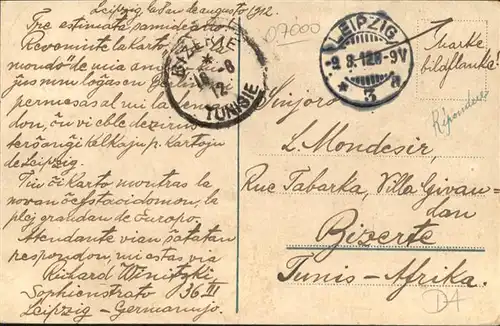 Leipzig la 8an de aŭgusto 1912.
Tre estimata samideano!
Revoninte la karto,
mondo" de mia
ĝus mun loĝas en
permesas al mi la
don, ĉu vi eble deziras
terŝanĝi kelkajn p. kartojn
de Leipzig.
Tiu ĉi karto montras la
novan ĉefstacidomon, la
plej grandan de Eŭropo.
Atendante vian ŝatatan
respondon, mi estas via
Richard Wenitzki
Sophienstrato 36 III
Leipzig – Germanujo.
BIZERTE
18 - 8
12
TUNISIE
07000
LEIPZIG
-9.8.12.8-9V
* 3 a
Marke
bildflanke!
Répondere
Sinjoro
L. Mondesir,
Rue Tabarka, Villa Givau-
dan
Bizerte
Tunis-Afrika.
D4